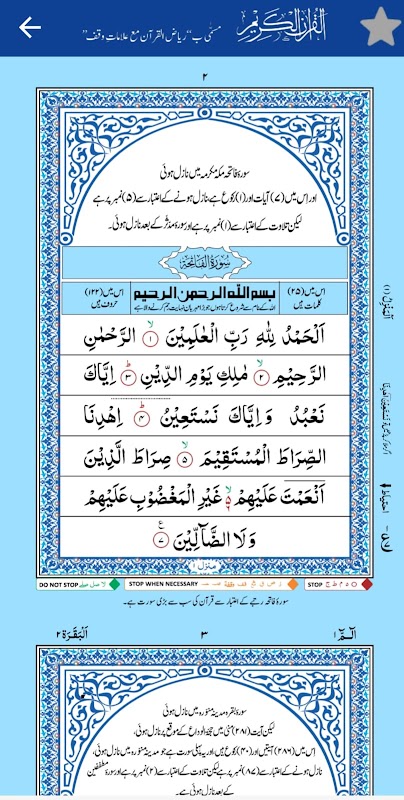 القرآن الکریم مسمٰی ب "ریاض القرآن مع علامات وقف"
۲
سورۂ فاتحہ مکہ مکرمہ میں نازل ہوئی
اور اِس میں (۷) آیات اور (۱) رکوع ہے نازل ہونے کے اعتبار سے (۵) نمبر پر ہے
لیکن تلاوت کے اعتبار سے (۱) نمبر پر ہے اور سورۂ مدثر کے بعد نازل ہوئی۔
سُوْرَةُ الْفَاتِحَة
اس میں (۲۵) کلمات ہیں
بسم الله الرحمن الرحيم
اس میں (۱۲۳) حروف ہیں
اللہ کے نام سے شروع کرتا ہوں جو بڑا مہربان نہایت رحم کرنے والا ہے
اَلْحَمْدُ لِلّٰهِ رَبِّ الْعٰلَمِيْنَ ۙ ۱ الرَّحْمٰنِ
الرَّحِيْمِ ۙ ۲ مٰلِكِ يَوْمِ الدِّيْنِ ۳ اِيَّاكَ
نَعْبُدُ وَاِيَّاكَ نَسْتَعِيْنُ ۴ اِهْدِنَا
الصِّرَاطَ الْمُسْتَقِيْمَ ۙ ۵ صِرَاطَ الَّذِيْنَ
اَنْعَمْتَ عَلَيْهِمْ ۙ ۵ غَيْرِ الْمَغْضُوْبِ عَلَيْهِمْ
وَلَا الضَّآلِّيْنَ ۷ ع
منزل ۱
DO NOT STOP لا صل صلے STOP WHEN NECESSARY ز ص ق STOP ○ م ط ج
سورۂ فاتحہ رتبے کے اعتبار سے قرآن کی سب سے بڑی سورت ہے۔
احتیاط
الٓمّٓ ۱ ۳ اَلْبَقَرَة ۲
سورۂ بقرہ مدینہ منورہ میں نازل ہوئی
لیکن آیت (۲۸۱) منٰی میں حجۃ الوداع کے موقع پر نازل ہوئی،
اس میں (۲۸۶) آیتیں اور (۴۰) رکوع ہیں، اور یہ پہلی سورت ہے جو مدینہ منورہ میں
نازل ہونے کے اعتبار سے (۸۷) نمبر پر ہے لیکن تلاوت کے اعتبار سے (۲) نمبر پر ہے اور سورۂ مطففین
کے بعد نازل ہوئی۔